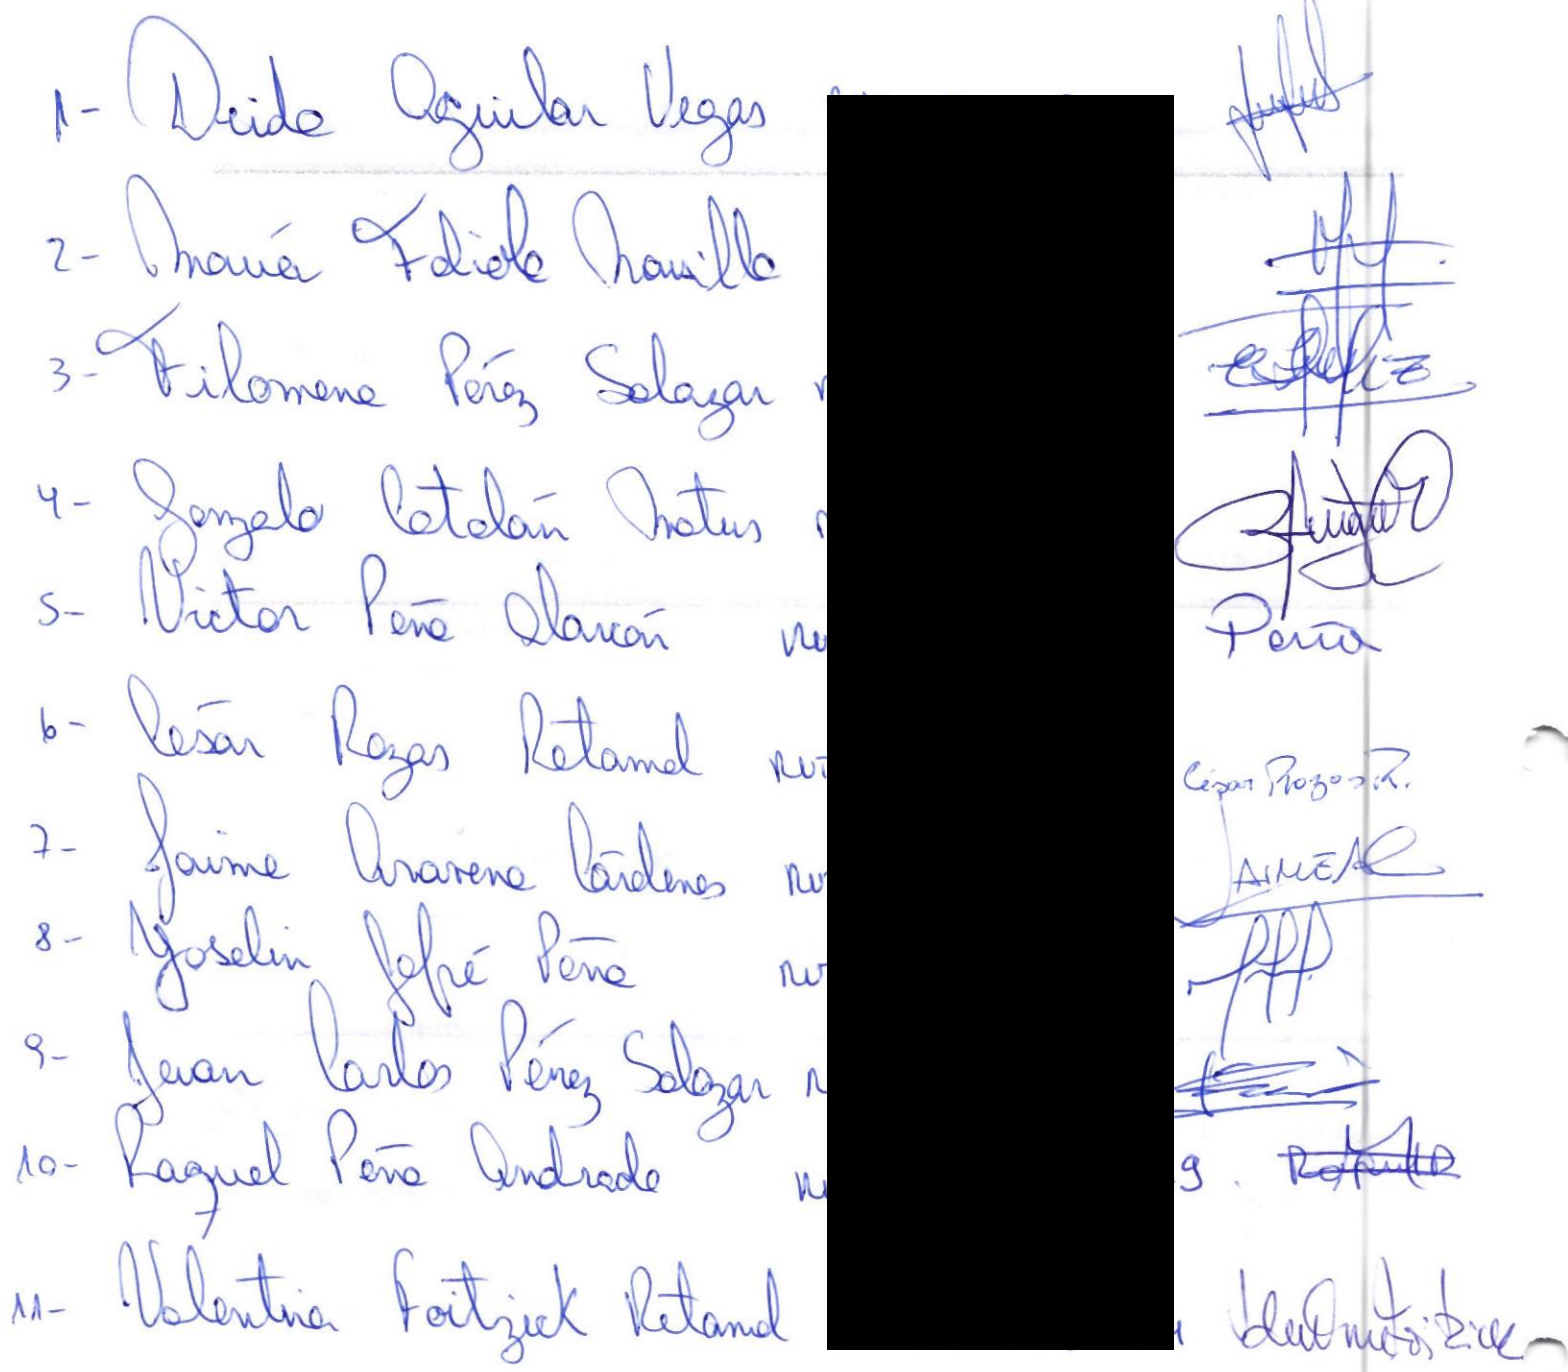 1- Deida Aguilar Vegas
2- María Fabiola Mansilla
3- Filomena Pérez Salazar
4- Gonzalo Catalán Matus
5- Victor Peña Alarcón Peña
6- César Rozas Retamal RUT César Rozas R.
7- Jaime Aravena Cárdenas JAIME AC
8- Yoselin Jofré Peña RUT
9- Juan Carlos Pérez Salazar
10- Raquel Peña Andrade 9.
11- Valentina Foitzick Retamal